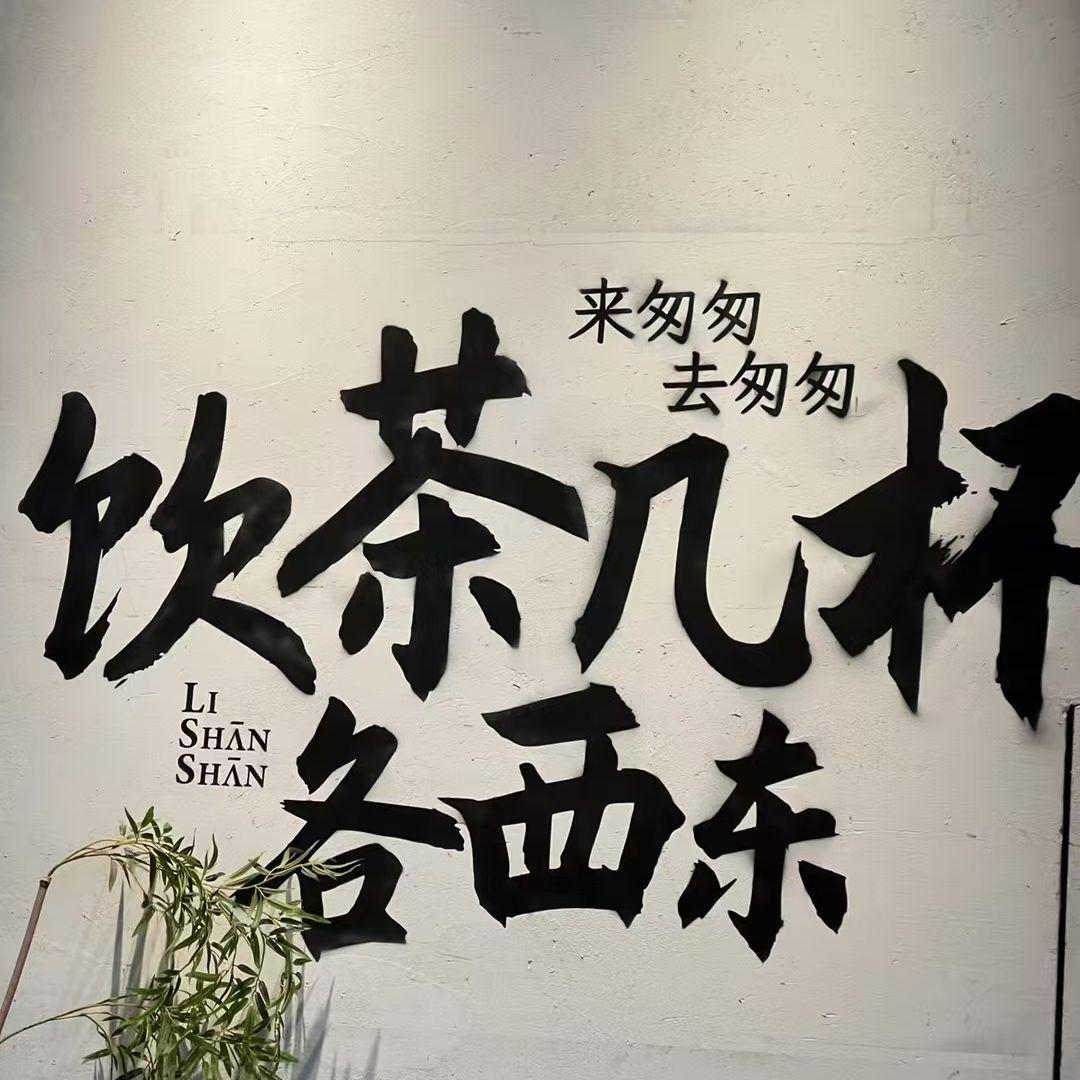 来匆匆
去匆匆
饮茶几杯
各西东
LI
SHĀN
SHĀN